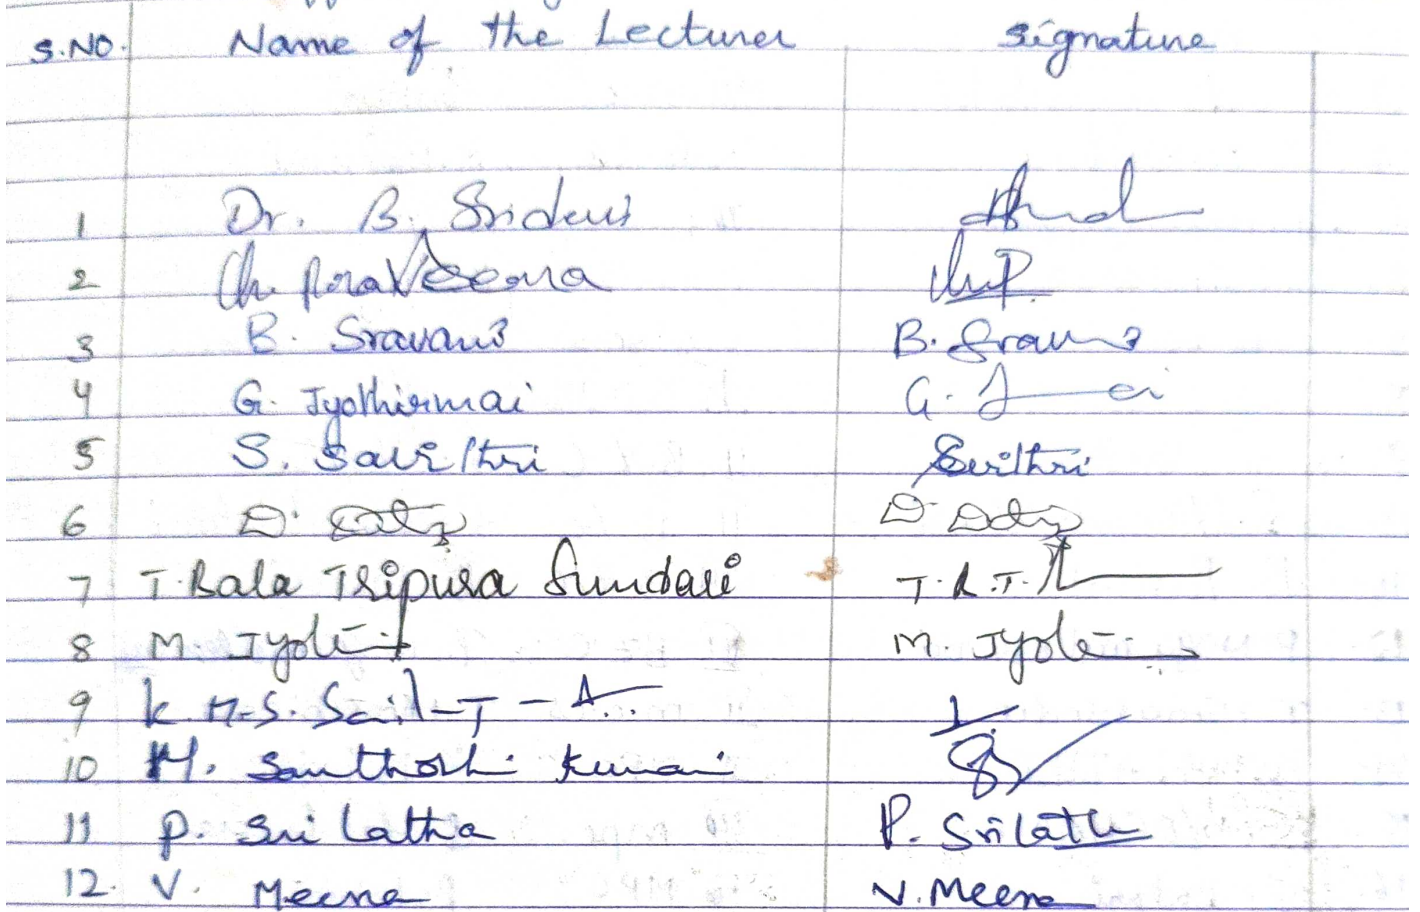 S.NO. Name of the Lecturer Signature
1 Dr. B. Sridevi
2 Ch. Praveena Ch.P
3 B. Sravani B. Sravani
4 G. Jyothirmai G. J
5 S. Savithri Savithri
6 D. D.
7 T. Bala Tripura Sundari T.B.T.
8 M. Jyoti M. Jyoti
9 K. M.S.
10 M. Santhoshi Kumari
11 P. Sri Latha P. Srilatha
12. V. Meena V. Meena